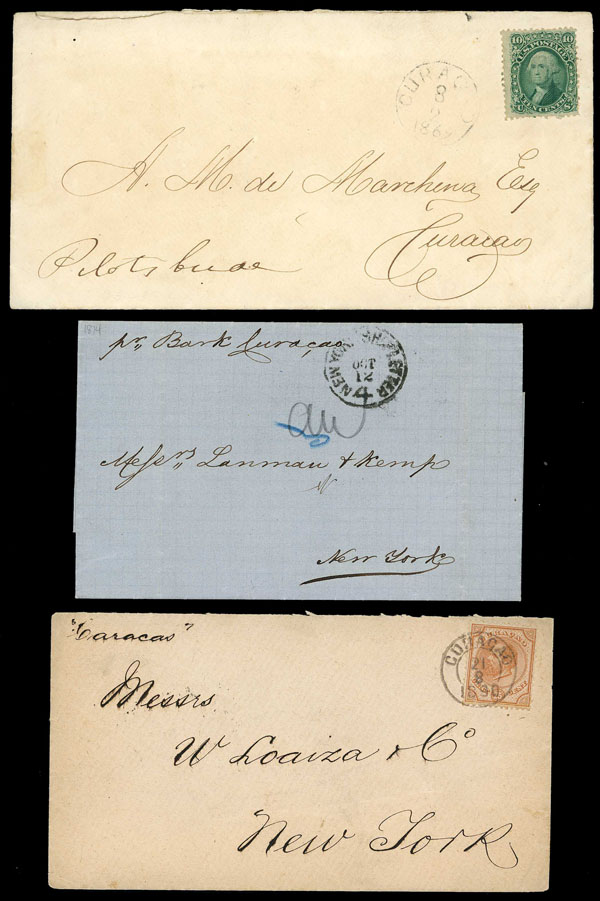 10 10
U.S. POSTAGE
TEN CENTS
CURACAO
8
186
A. M. de Marchena Esq
Curaçao
1874
pr, Bark Curaçao
NEW YORK SHIP LETTER
OCT
12
4
Messrs, Lanman & Kemp
New York
"Caracas"
CURAÇAO
21
8
1890
Messrs
W Loaiza & Co
New York